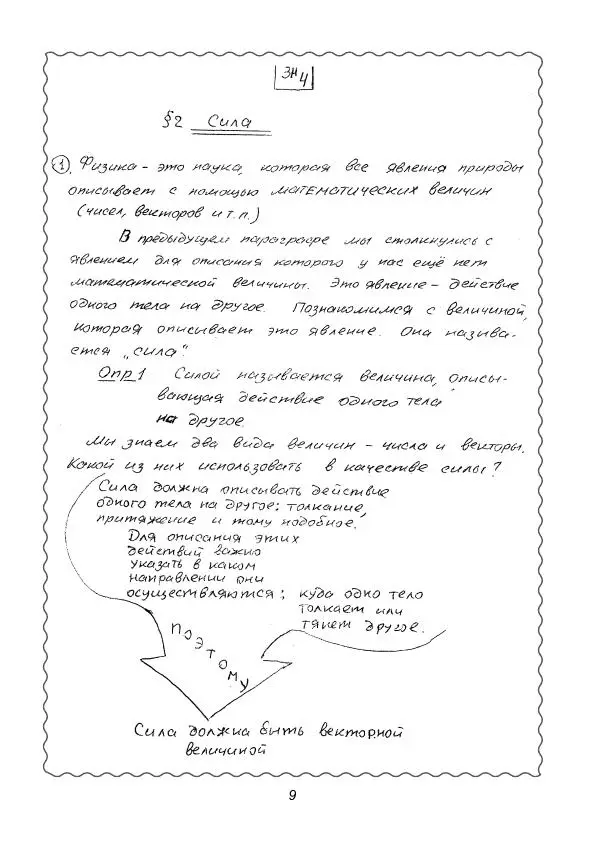 ЗН4
§2 Сила
1. Физика - это наука, которая все явления природы
описывает с помощью математических величин
(чисел, векторов и т.п.)
В предыдущем параграфе мы столкнулись с
явлением для описания которого у нас ещё нет
математической величины. Это явление - действие
одного тела на другое. Познакомимся с величиной,
которая описывает это явление. Она называ-
ется „сила".
Опр 1 Силой называется величина, описы-
вающая действие одного тела
на другое.
Мы знаем два вида величин - числа и векторы.
Какой из них использовать в качестве силы?
Сила должна описывать действие
одного тела на другое: толкание,
притяжение и тому подобное.
Для описания этих
действий важно
указать в каком
направлении они
осуществляются; куда одно тело
толкает или
тянет другое.
ПОЭТОМУ
Сила должна быть векторной
величиной
9